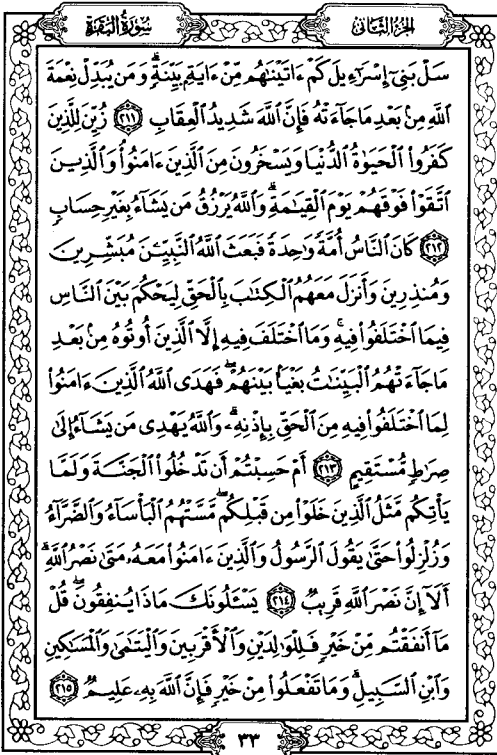 سُورَةُ البَقَرَةِ
الجزء الثانى
سَلْ بَنِىٓ إِسْرَٰٓءِيلَ كَمْ ءَاتَيْنَٰهُم مِّنْ ءَايَةٍۭ بَيِّنَةٍۗ وَمَن يُبَدِّلْ نِعْمَةَ
ٱللَّهِ مِنۢ بَعْدِ مَا جَآءَتْهُ فَإِنَّ ٱللَّهَ شَدِيدُ ٱلْعِقَابِ ٢١١ زُيِّنَ لِلَّذِينَ
كَفَرُوا۟ ٱلْحَيَوٰةُ ٱلدُّنْيَا وَيَسْخَرُونَ مِنَ ٱلَّذِينَ ءَامَنُوا۟ۘ وَٱلَّذِينَ
ٱتَّقَوْا۟ فَوْقَهُمْ يَوْمَ ٱلْقِيَٰمَةِۗ وَٱللَّهُ يَرْزُقُ مَن يَشَآءُ بِغَيْرِ حِسَابٍ
٢١٢ كَانَ ٱلنَّاسُ أُمَّةً وَٰحِدَةً فَبَعَثَ ٱللَّهُ ٱلنَّبِيِّۦنَ مُبَشِّرِينَ
وَمُنذِرِينَ وَأَنزَلَ مَعَهُمُ ٱلْكِتَٰبَ بِٱلْحَقِّ لِيَحْكُمَ بَيْنَ ٱلنَّاسِ
فِيمَا ٱخْتَلَفُوا۟ فِيهِۚ وَمَا ٱخْتَلَفَ فِيهِ إِلَّا ٱلَّذِينَ أُوتُوهُ مِنۢ بَعْدِ
مَا جَآءَتْهُمُ ٱلْبَيِّنَٰتُ بَغْيًۢا بَيْنَهُمْۖ فَهَدَى ٱللَّهُ ٱلَّذِينَ ءَامَنُوا۟
لِمَا ٱخْتَلَفُوا۟ فِيهِ مِنَ ٱلْحَقِّ بِإِذْنِهِۦۗ وَٱللَّهُ يَهْدِى مَن يَشَآءُ إِلَىٰ
صِرَٰطٍ مُّسْتَقِيمٍ ٢١٣ أَمْ حَسِبْتُمْ أَن تَدْخُلُوا۟ ٱلْجَنَّةَ وَلَمَّا
يَأْتِكُم مَّثَلُ ٱلَّذِينَ خَلَوْا۟ مِن قَبْلِكُمۖ مَّسَّتْهُمُ ٱلْبَأْسَآءُ وَٱلضَّرَّآءُ
وَزُلْزِلُوا۟ حَتَّىٰ يَقُولَ ٱلرَّسُولُ وَٱلَّذِينَ ءَامَنُوا۟ مَعَهُۥ مَتَىٰ نَصْرُ ٱللَّهِۗ
أَلَآ إِنَّ نَصْرَ ٱللَّهِ قَرِيبٌ ٢١٤ يَسْـَٔلُونَكَ مَاذَا يُنفِقُونَۖ قُلْ
مَآ أَنفَقْتُم مِّنْ خَيْرٍ فَلِلْوَٰلِدَيْنِ وَٱلْأَقْرَبِينَ وَٱلْيَتَٰمَىٰ وَٱلْمَسَٰكِينِ
وَٱبْنِ ٱلسَّبِيلِۗ وَمَا تَفْعَلُوا۟ مِنْ خَيْرٍ فَإِنَّ ٱللَّهَ بِهِۦ عَلِيمٌ ٢١٥
٣٣